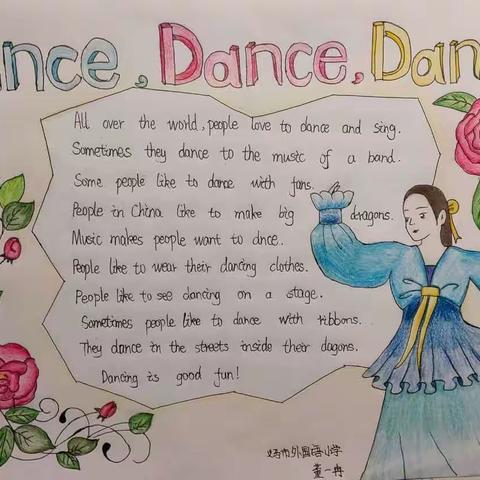 ance, Dance, Dan
All over the world, people love to dance and sing.
Sometimes they dance to the music of a band.
Some people like to dance with fans.
People in China like to make big dragons.
Music makes people want to dnce.
People like to wear their dancing clothes.
People like to see dancing on a stage.
Sometimes people like to dance with ribbons.
They dance in the streets inside their dagons.
Dancing is good fun!
义乌市外国语小学
董一冉